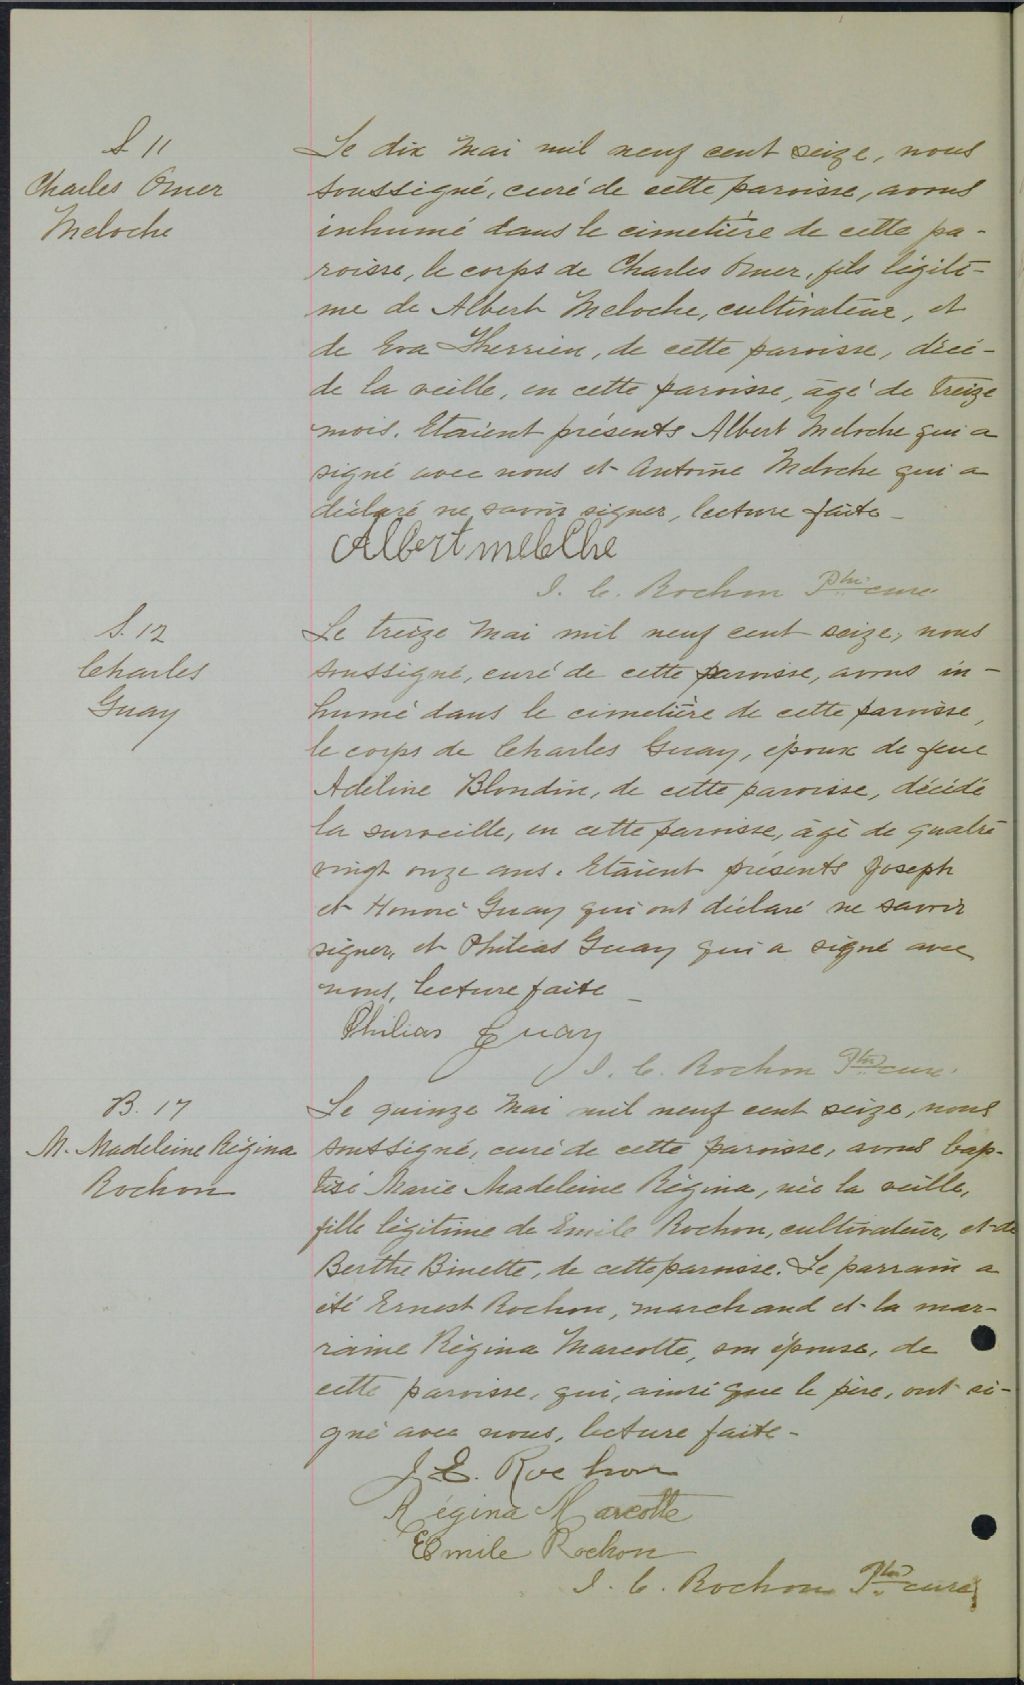 S. 11
Charles Omer
Meloche
Le dix Mai mil neuf cent seize, nous
soussigné, curé de cette paroisse, avons
inhumé dans le cimetière de cette pa-
roisse, le corps de Charles Omer, fils légiti-
me de Albert Meloche, cultivateur, et
de Eva Therrien, de cette paroisse, décé-
dé la veille, en cette paroisse, âgé de treize
mois. Etaient présents Albert Meloche qui a
signé avec nous et Antoine Meloche qui a
déclaré ne savoir signer, lecture faite_
Albert meloche
J. C. Rochon Ptre curé
S. 12
Charles
Guay
Le treize Mai mil neuf cent seize, nous
soussigné, curé de cette paroisse, avons in-
humé dans le cimetière de cette paroisse,
le corps de Charles Guay, époux de feue
Adéline Blondin, de cette paroisse, décédé
la surveille, en cette paroisse, âgé de quatre
vingt onze ans. Etaient présents Joseph
et Honoré Guay qui ont déclaré ne savoir
signer, et Philias Guay qui a signé avec
nous, lecture faite_
Philias Guay
J. C. Rochon Ptre curé.
B. 17
M. Madeleine Régina
Rochon
Le quinze Mai mil neuf cent seize, nous
soussigné, curé de cette paroisse, avons bap-
tisé Marie Madeleine Régina, née la veille,
fille légitime de Emile Rochon, cultivateur, et de
Berthe Binette, de cette paroisse. Le parrain a
été Ernest Rochon, marchand et la mar-
raine Régina Marcotte, son épouse, de
cette paroisse, qui, ainsi que le père, ont si-
gné avec nous, lecture faite-
J. E. Rochon
Régina Marcotte
Emile Rochon
J. C. Rochon Ptre curé